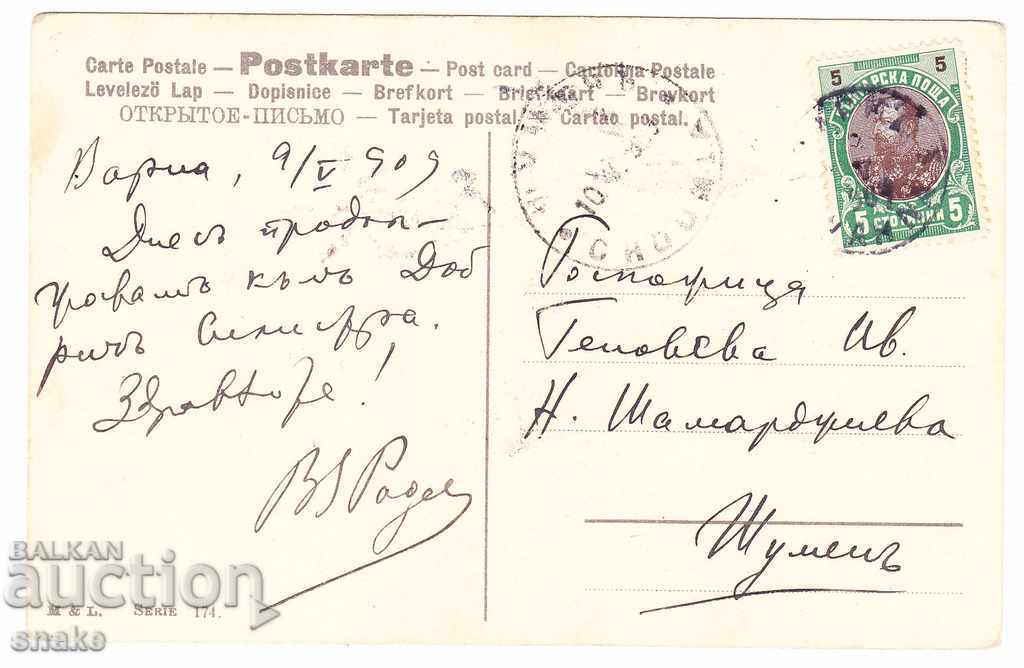 Carte Postale — Postkarte — Post card — Cartolina Postale
Levelezö Lap — Dopisnice — Brefkort — Briefkaart — Brevkort
ОТКРЫТОЕ-ПИСЬМО — Tarjeta postal. — Cartao postal.
5 5
БЪЛГАРСКА ПОЩА
5 СТОТИНКИ 5
Варна, 9/V 909
Днесъ продъл-
жавамъ къмъ Доб
ричъ Силистра.
Здраве!
Госпожица
Геновева Ив.
Н. Шамарджиева
Шуменъ
M & L. SERIE 174.
BALKAN
auction
snake